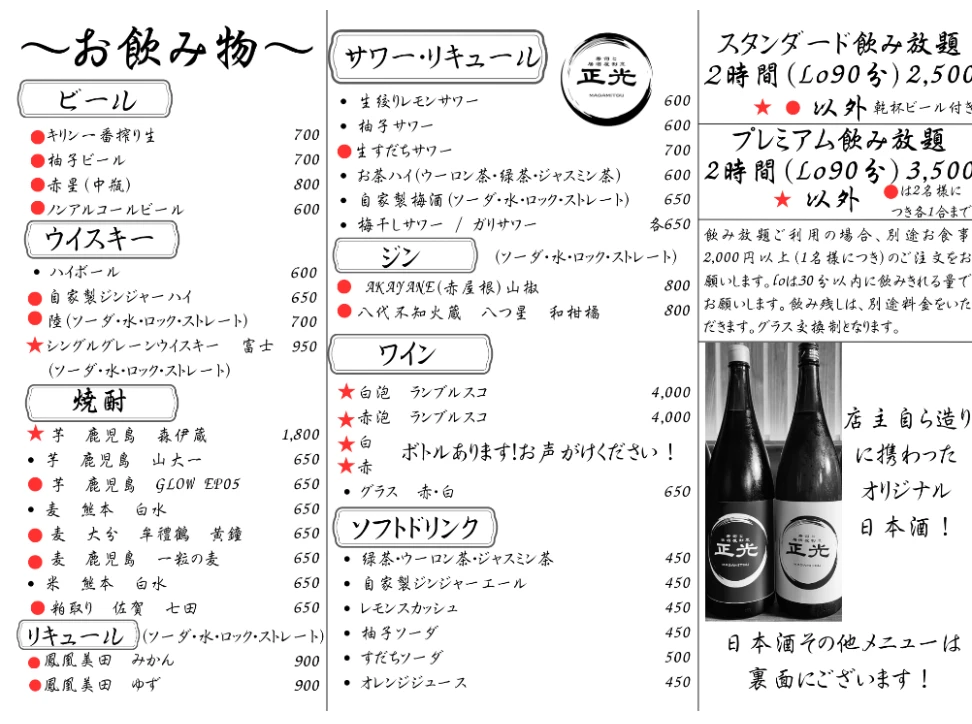 ～お飲み物～
ビール
●キリン一番搾り生 700
●柚子ビール 700
●赤星(中瓶) 800
●ノンアルコールビール 600
ウイスキー
• ハイボール 600
●自家製ジンジャーハイ 650
●陸(ソーダ・水・ロック・ストレート) 700
★シングルグレーンウイスキー 富士 950
(ソーダ・水・ロック・ストレート)
焼酎
★芋 鹿児島 森伊蔵 1,800
• 芋 鹿児島 山大一 650
●芋 鹿児島 GLOW EP05 650
• 麦 熊本 白水 650
●麦 大分 牟禮鶴 黄鐘 650
●麦 鹿児島 一粒の麦 650
• 米 熊本 白水 650
●粕取り 佐賀 七田 650
リキュール (ソーダ・水・ロック・ストレート)
●鳳凰美田 みかん 900
●鳳凰美田 ゆず 900
サワー・リキュール
正光
NAGAMITSU
• 生絞りレモンサワー 600
• 柚子サワー 600
●生すだちサワー 700
• お茶ハイ(ウーロン茶・緑茶・ジャスミン茶) 600
• 自家製梅酒(ソーダ・水・ロック・ストレート) 650
• 梅干しサワー / ガリサワー 各650
ジン (ソーダ・水・ロック・ストレート)
● AKAYANE(赤屋根)山椒 800
●八代不知火蔵 八つ星 和柑橘 800
ワイン
★白泡 ランブルスコ 4,000
★赤泡 ランブルスコ 4,000
★白
★赤
ボトルあります!お声がけください！
• グラス 赤・白 650
ソフトドリンク
• 緑茶・ウーロン茶・ジャスミン茶 450
• 自家製ジンジャーエール 450
• レモンスカッシュ 450
• 柚子ソーダ 450
• すだちソーダ 500
• オレンジジュース 450
スタンダード飲み放題
2時間(Lo90分)2,500
★●以外 乾杯ビール付き
プレミアム飲み放題
2時間(Lo90分)3,500
★以外 ●は2名様に
つき各1合まで
飲み放題ご利用の場合、別途お食事
2,000円以上(1名様につき)のご注文をお
願いします。Loは30分以内に飲みきれる量で
お願いします。飲み残しは、別途料金をいた
だきます。グラス交換制となります。
正光
正光
店主自ら造り
に携わった
オリジナル
日本酒！
日本酒その他メニューは
裏面にございます！